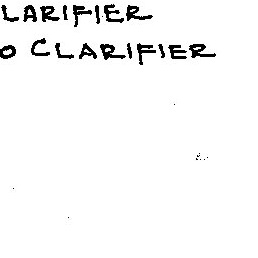 LARIFIER
O CLARIFIER